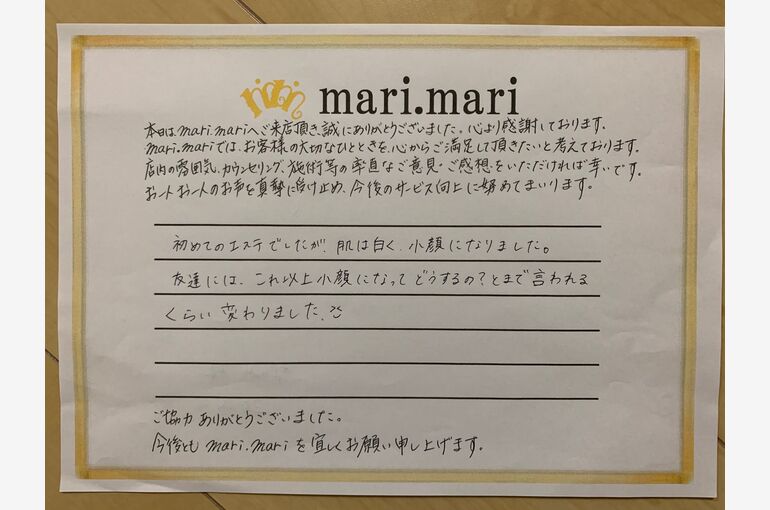 mari.mari
本日は、mari.mariへご来店頂き、誠にありがとうございました。心より感謝しております。
mari.mariでは、お客様の大切なひとときを、心からご満足して頂きたいと考えております。
店内の雰囲気、カウンセリング、施術等の率直なご意見・ご感想をいただければ幸いです。
お一人お一人のお声を真摯に受け止め、今後のサービス向上に努めてまいります。
初めてのエステでしたが、肌は白く、小顔になりました。
友達には、これ以上小顔になってどうするの？とまで言われる
くらい変わりました。
ご協力ありがとうございました。
今後とも mari.mari を宜しくお願い申し上げます。